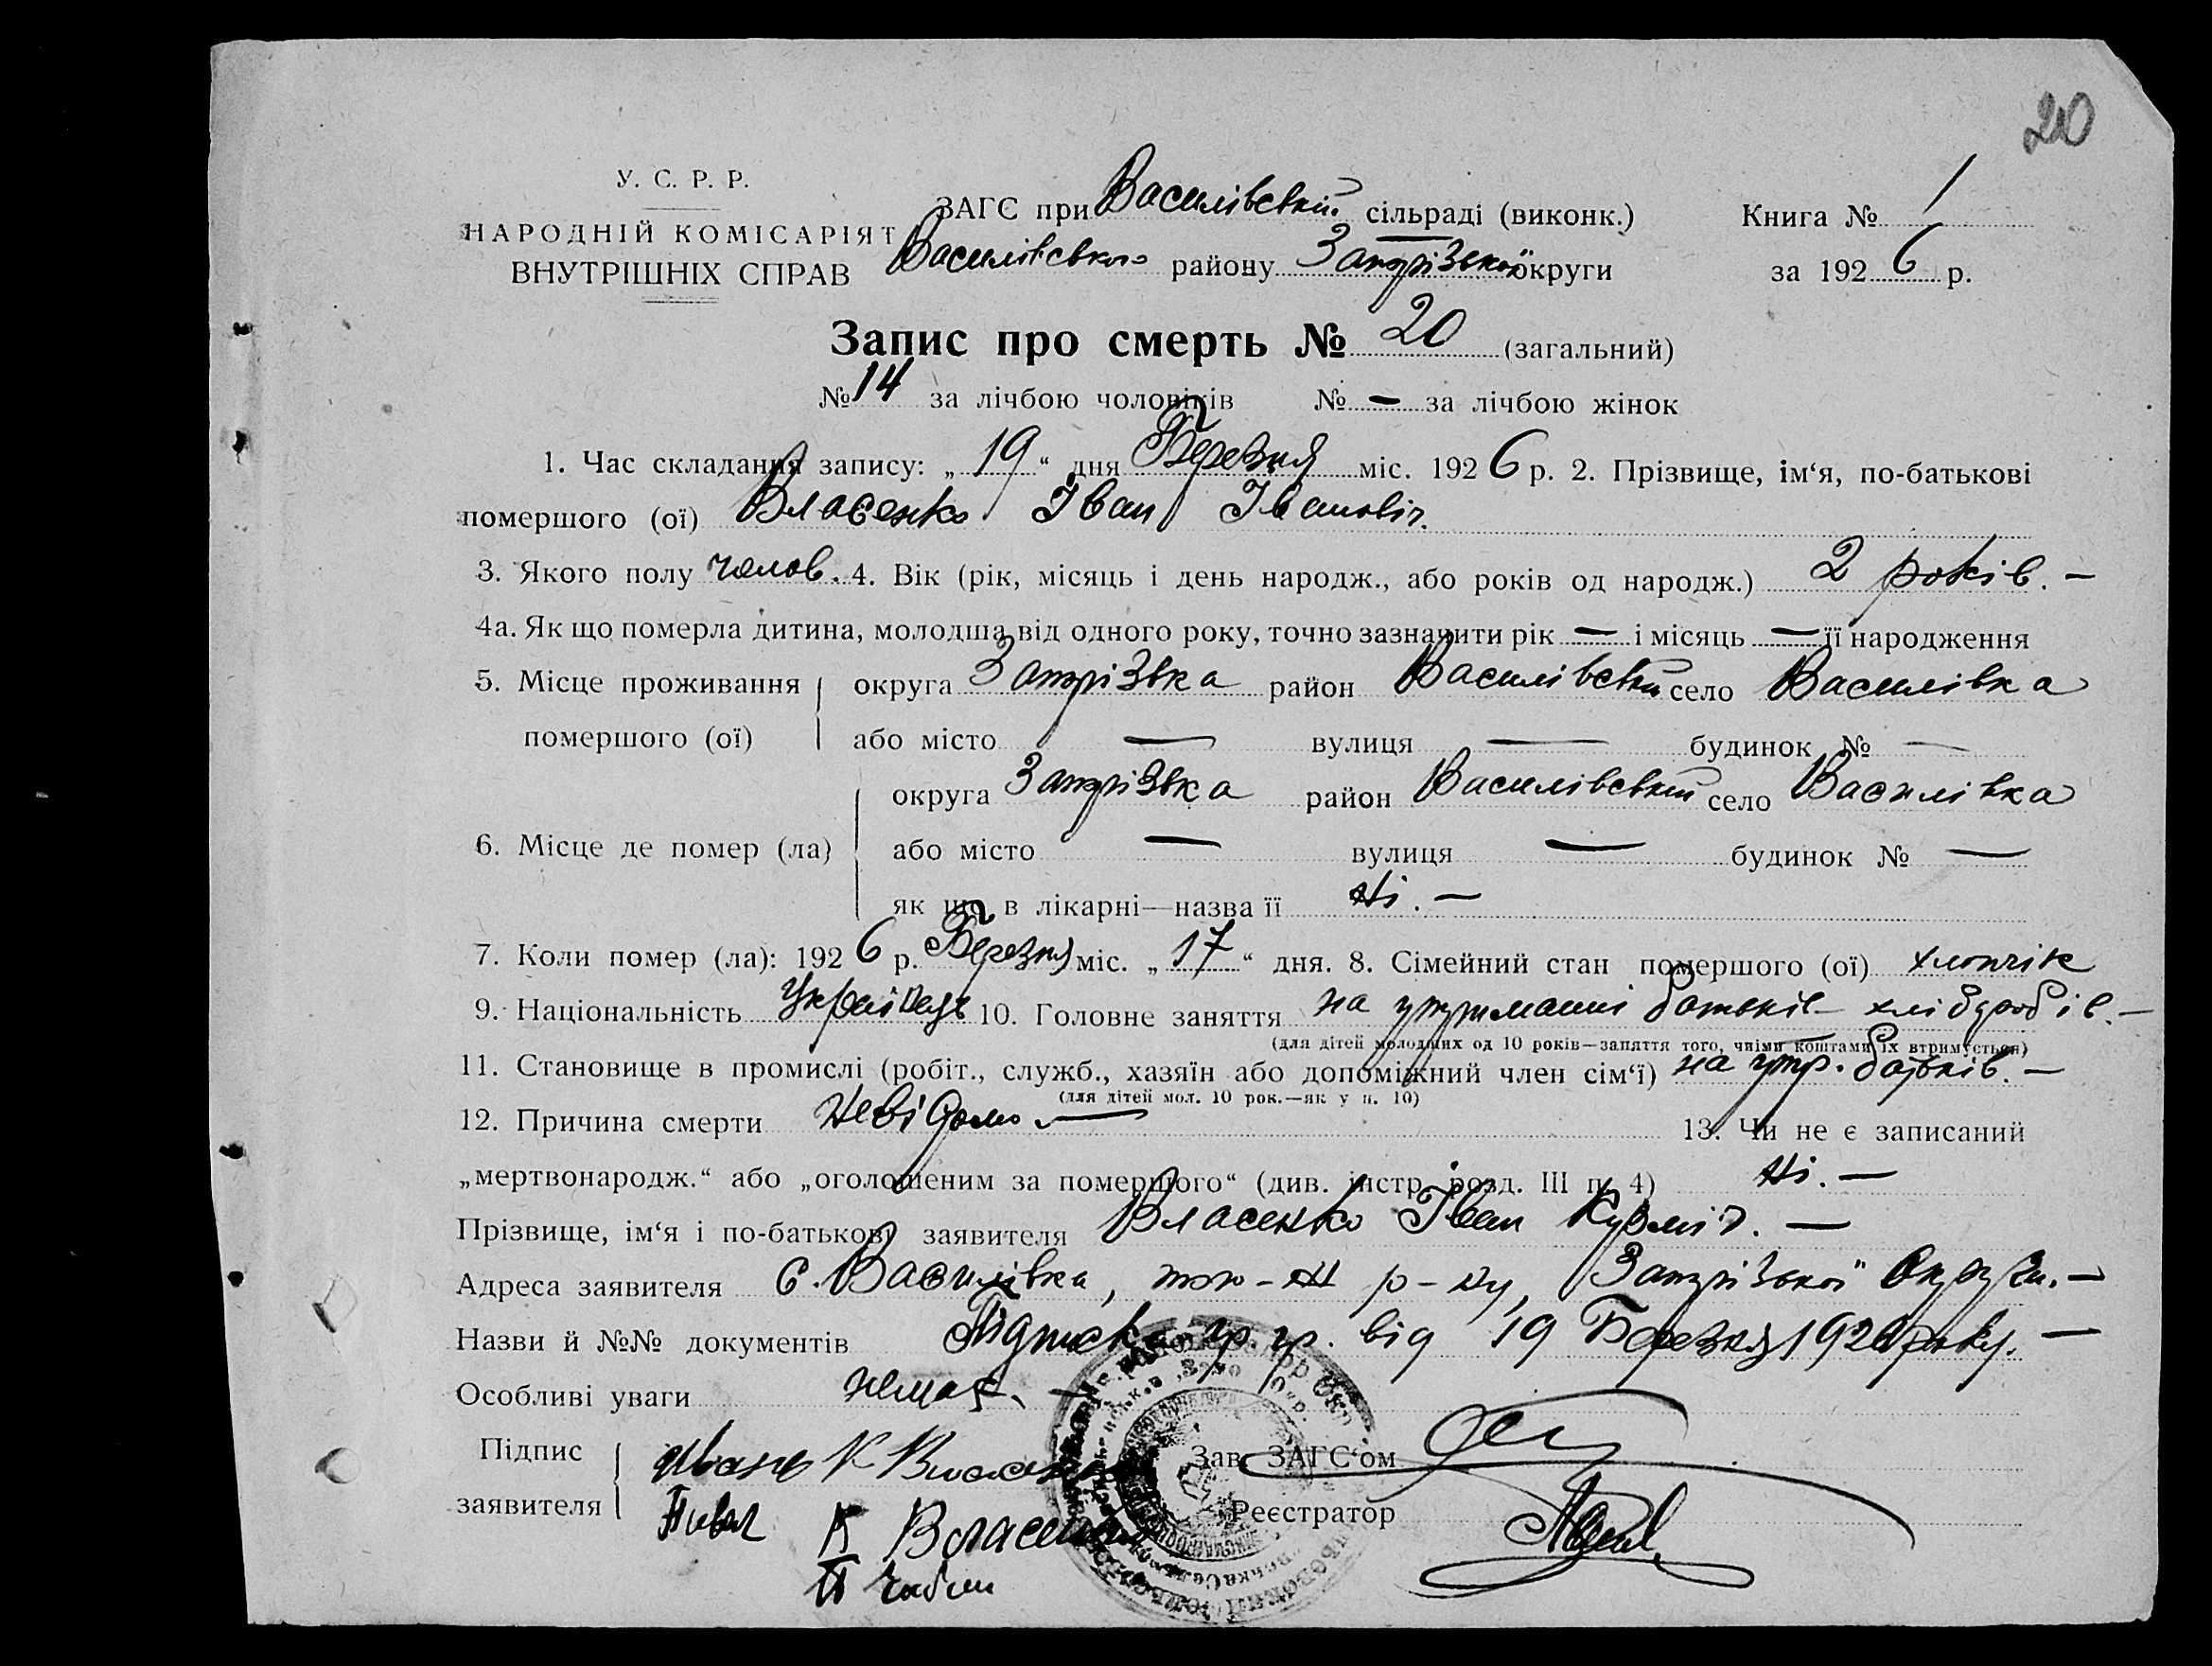 20
У. С. Р. Р.
НАРОДНІЙ КОМІСАРІЯТ
ВНУТРІШНІХ СПРАВ
ЗАГС при Василівській сільраді (виконк.)
Василівського району Запорізької округи
Книга № 1
за 1926 р.
Запис про смерть № 20 (загальний)
№ 14 за лічбою чоловіків № — за лічбою жінок
1. Час складання запису: „19“ дня Березня міс. 1926 р. 2. Прізвище, ім‘я, по-батькові
помершого (ої) Власенко Іван Івановіч.
3. Якого полу чолов. 4. Вік (рік, місяць і день народж., або років од народж.) 2 років. —
4а. Як що померла дитина, молодша від одного року, точно зазначити рік — і місяць — її народження
5. Місце проживання помершого (ої) округа Запорізька район Василівський село Василівка
або місто — вулиця — будинок № —
6. Місце де помер (ла) округа Запорізька район Василівський село Василівка
або місто — вулиця — будинок № —
як що в лікарні—назва її Ні. —
7. Коли помер (ла): 1926 р. Березня міс. „17“ дня. 8. Сімейний стан помершого (ої) хлопчік
9. Національність Українець 10. Головне заняття на утриманні батьків хліборобів. —
(для дітей молодших од 10 років—заняття того, чиїми коштами їх втримується)
11. Становище в промислі (робіт., служб., хазяїн або допоміжний член сім‘ї) на утр. батьків. —
(для дітей мол. 10 рок.—як у п. 10)
12. Причина смерти Невідомо — 13. Чи не є записаний
„мертвонародж.“ або „оголошеним за помершого“ (див. інстр. розд. III п. 4) Ні. —
Прізвище, ім‘я і по-батькові заявителя Власенко Іван Кузміч. —
Адреса заявителя С. Василівка, р-ну, Запорізької Округи. —
Назви й №№ документів Підписка гр. гр. від 19 Березня 1926 року. —
Особливі уваги немає. —
Підпис заявителя Иванъ К Власенко
К Власенко
Зав. ЗАГС‘ом
Реєстратор